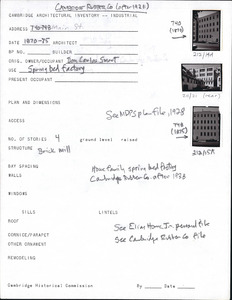 CAMBRIDGE RUBBER CO (after 1928)
CAMBRIDGE ARCHITECTURAL INVENTORY -- INDUSTRIAL
ADDRESS 740-748 Main St
DATE 1870-75 ARCHITECT
BP NO. BUILDER
ORIG. OWNER/OCCUPANT
USE Spring bed factory
PRESENT OCCUPANT
740
(1875)
212/14A
212/15A
PLAN AND DIMENSIONS
See MDPS plan file, 1928
ACCESS
NO. OF STORIES 4 ground level raised
STRUCTURE Brick mill
BAY SPACING
WALLS
Howe family spring bed factory
Cambridge Rubber Co. after 1928
WINDOWS
SILLS LINTELS
ROOF
CORNICE/PARAPET
OTHER ORNAMENT
See Elias Howe, Jr. personal file
See Cambridge Rubber Co. file
REMODELING
Cambridge Historical Commission By Date